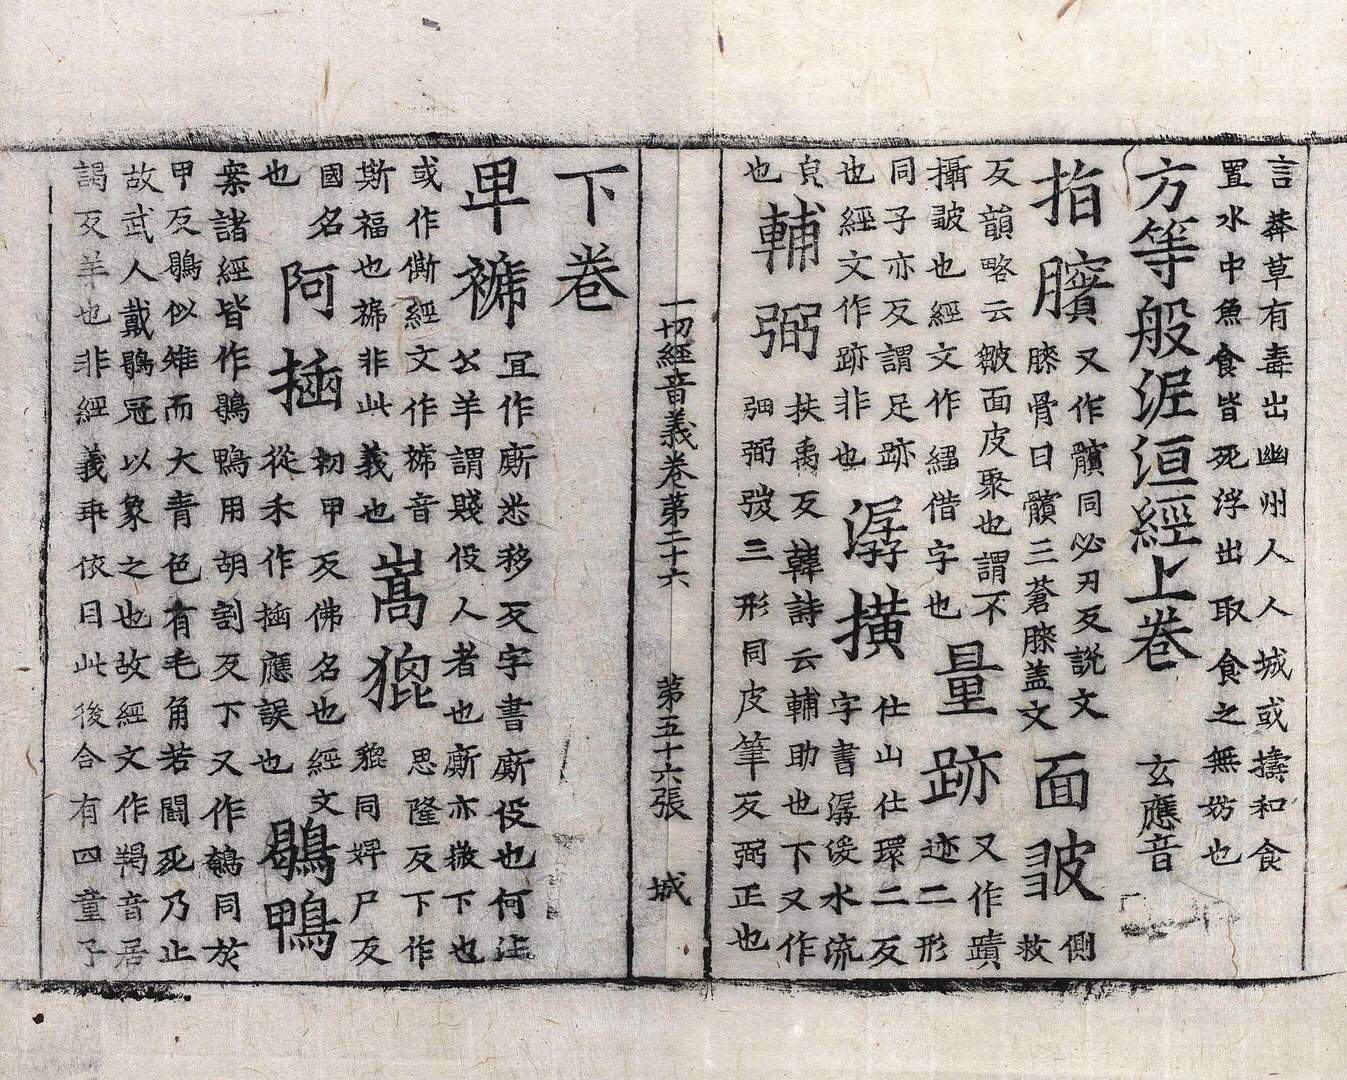 言莽草有毒出幽州人人城或擣和食
置水中魚食皆死浮出取食之無妨也
方等般泥洹經上卷 玄應音
指臏 又作髕同必刃反説文
膝骨曰髕三蒼膝盖文 面皺 側
救
反韻略云皺面皮聚也謂不
攝皺也經文作縐借字也 量跡 又作蹟
迹二形
同子亦反謂足跡
也經文作跡非也 潺 仕山仕環二反
字書潺湲水流
皃
也 輔弼 扶禹反韓詩云輔助也下又作
弼三形同皮筆反弼正也
一切經音義卷第二十六 第五十六張 城
下卷
卑褫 冝作廝悉移反字書廝役也何注
公羊謂賤伇人者也廝亦微下也
或作傂經文作褫音
斯福也褫非此義也 嵩猑 思隆反下作
貔同婢尸反
國名
也 阿插 初甲反佛名也經文
從禾作插應誤也 鶡鴨
案諸經皆作鶡鴨用胡割反下又作同於
甲反鶡似雉而大青色有毛角若鬪死乃止
故武人戴鶡冠以象之也故經文作羯音居
謁反羊也非經義乖依目此後合有四童子